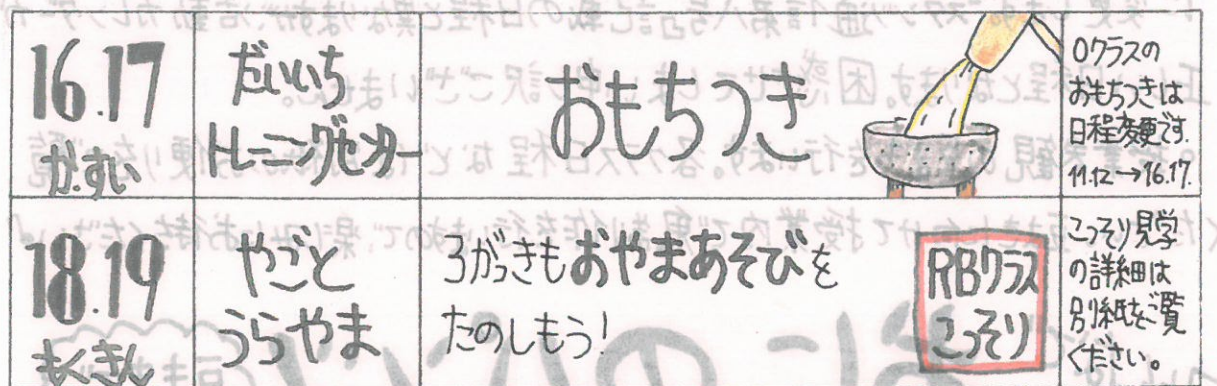 16.17
か.すい
だいいち
トレーニングセンター
おもちつき
0クラスの
おもちつきは
日程変更です.
11.12→16.17.
18.19
もく.きん
やごと
うらやま
3がっきもおやまあそびを
たのしもう!
RBクラス
こっそり
こっそり見学
の詳細は
別紙をご覧
ください。